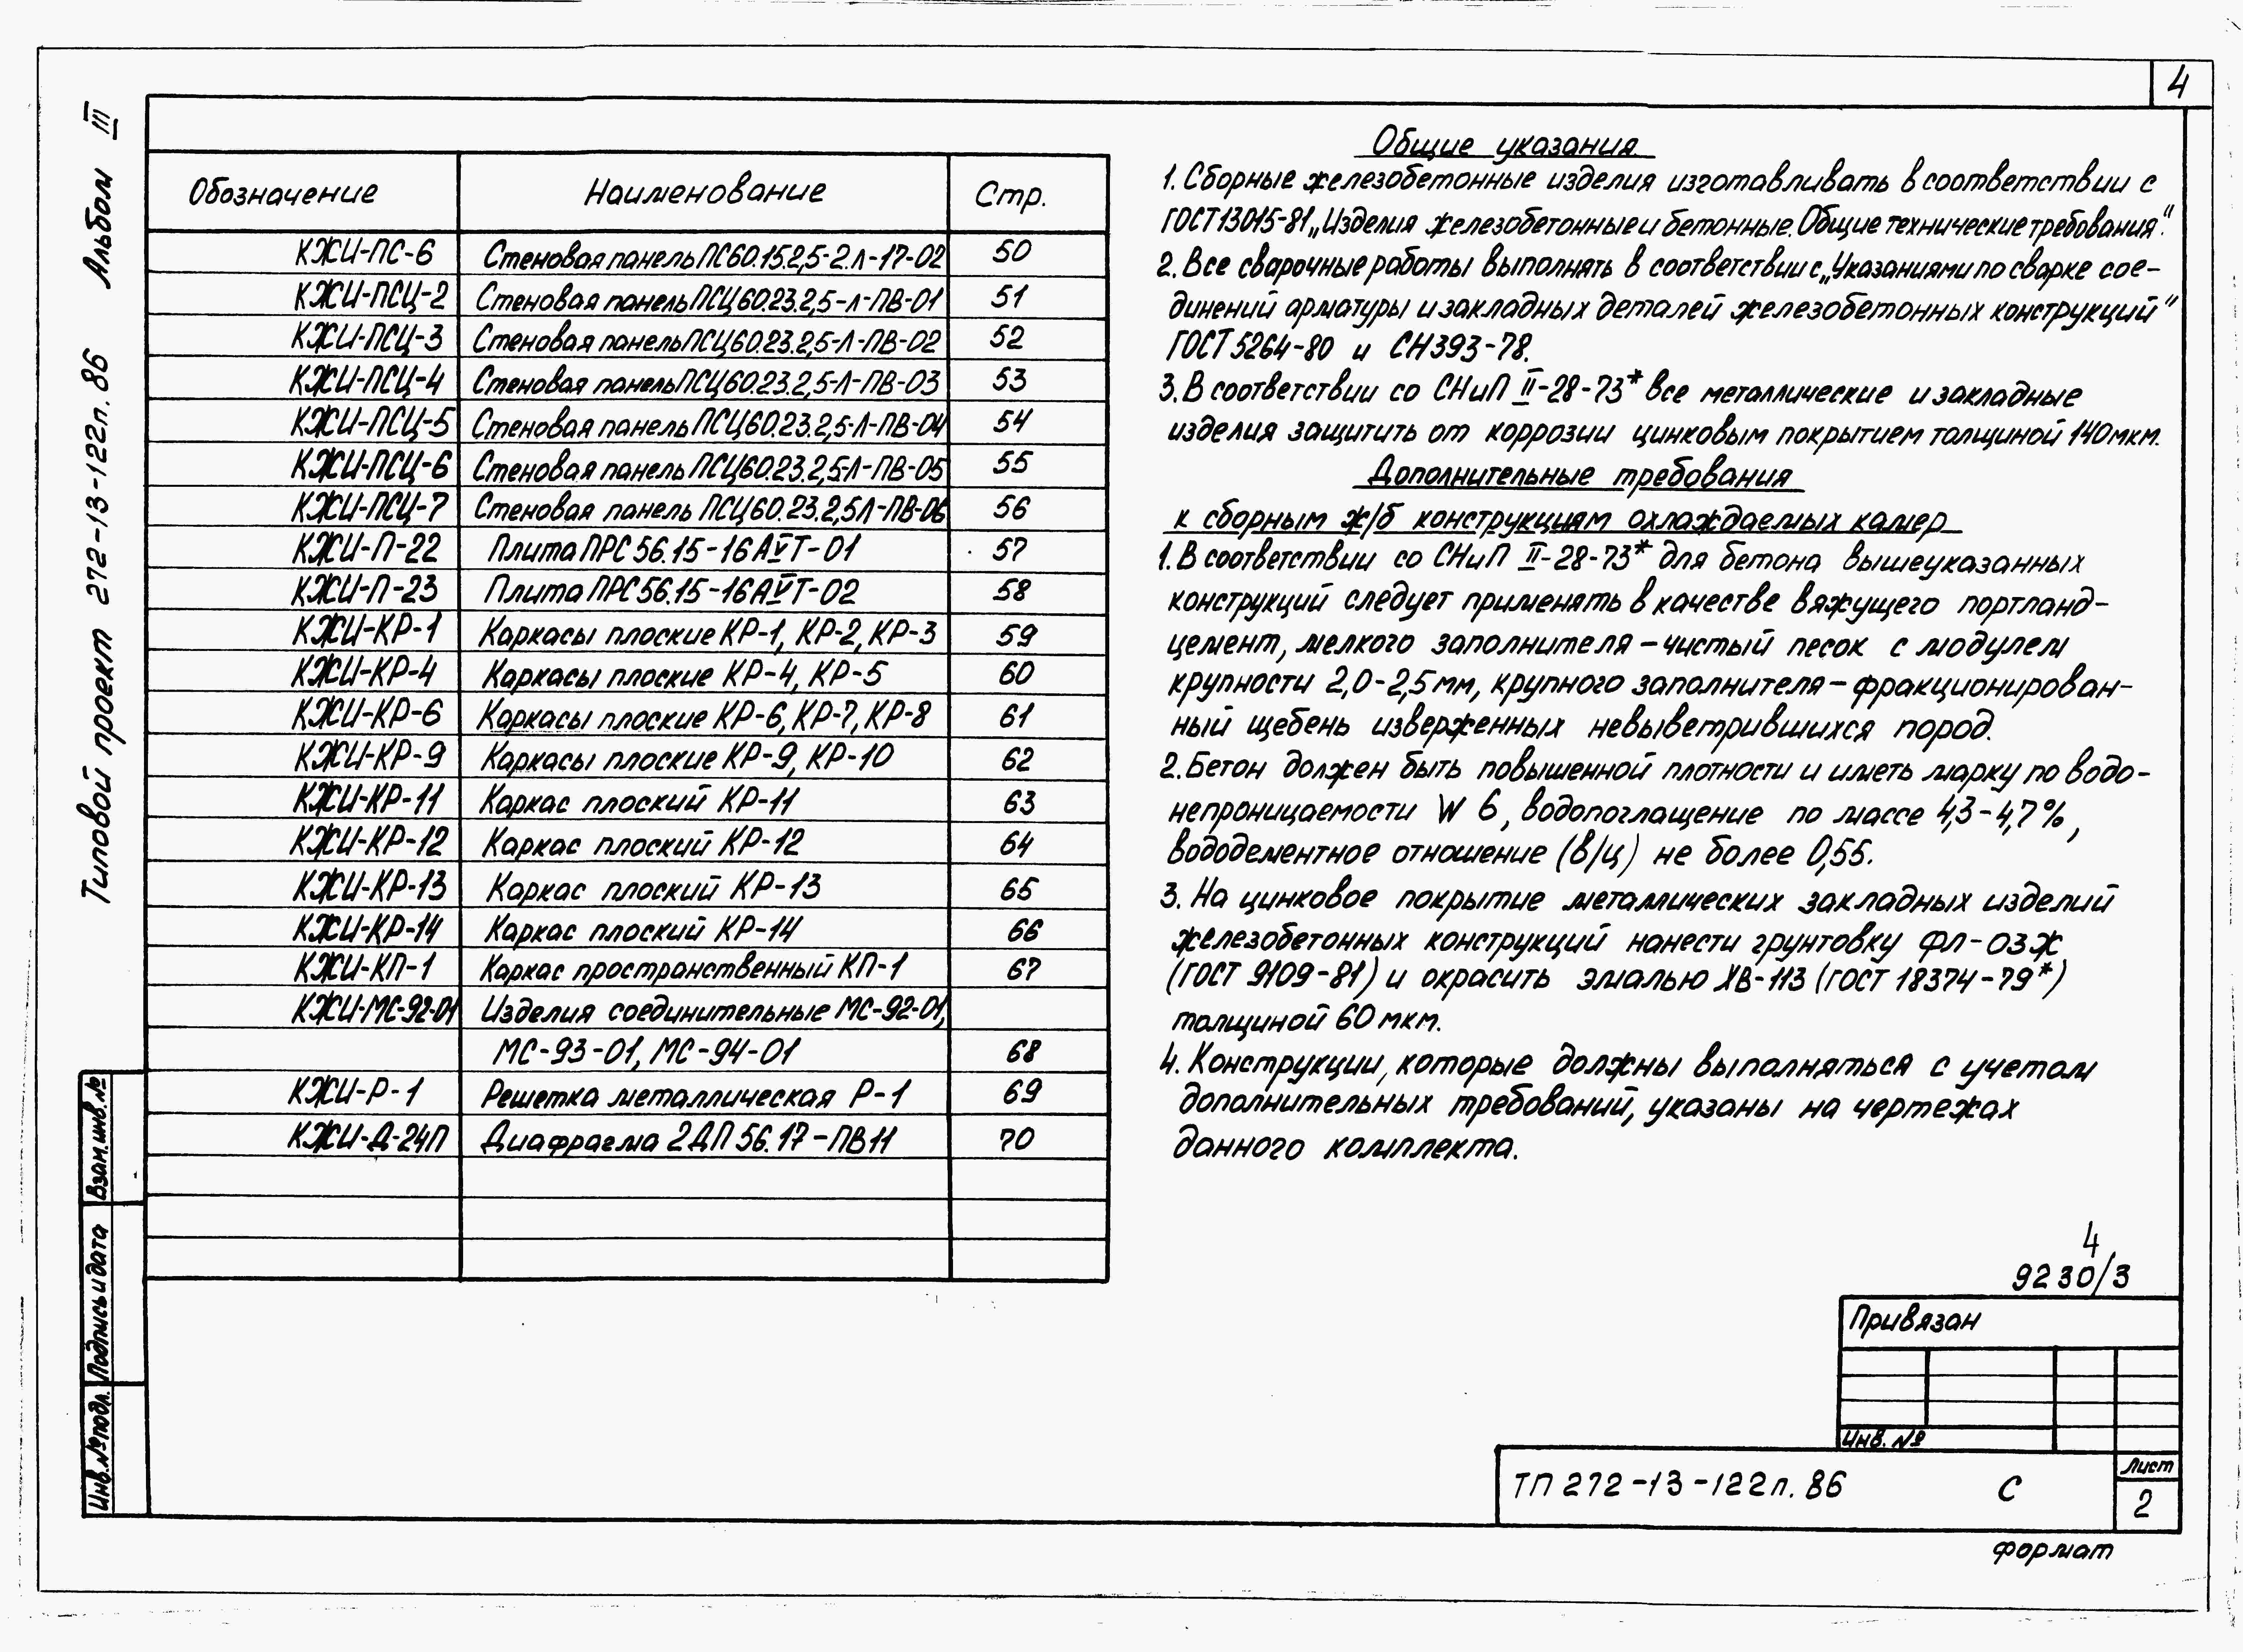 4
Типовой проект 272-13-122п.86 Альбом III
Обозначение Наименование Стр.
КЖИ-ПС-6 Стеновая панель ПС60.15.2,5-2.Л-17-02 50
КЖИ-ПСЦ-2 Стеновая панель ПСЦ60.23.2,5-Л-ПВ-01 51
КЖИ-ПСЦ-3 Стеновая панель ПСЦ60.23.2,5-Л-ПВ-02 52
КЖИ-ПСЦ-4 Стеновая панель ПСЦ60.23.2,5-Л-ПВ-03 53
КЖИ-ПСЦ-5 Стеновая панель ПСЦ60.23.2,5-Л-ПВ-04 54
КЖИ-ПСЦ-6 Стеновая панель ПСЦ60.23.2,5-Л-ПВ-05 55
КЖИ-ПСЦ-7 Стеновая панель ПСЦ60.23.2,5Л-ПВ-06 56
КЖИ-П-22 Плита ПРС56.15-16АVТ-01 57
КЖИ-П-23 Плита ПРС56.15-16АVТ-02 58
КЖИ-КР-1 Каркасы плоские КР-1, КР-2, КР-3 59
КЖИ-КР-4 Каркасы плоские КР-4, КР-5 60
КЖИ-КР-6 Каркасы плоские КР-6, КР-7, КР-8 61
КЖИ-КР-9 Каркасы плоские КР-9, КР-10 62
КЖИ-КР-11 Каркас плоский КР-11 63
КЖИ-КР-12 Каркас плоский КР-12 64
КЖИ-КР-13 Каркас плоский КР-13 65
КЖИ-КР-14 Каркас плоский КР-14 66
КЖИ-КП-1 Каркас пространственный КП-1 67
КЖИ-МС-92-01 Изделия соединительные МС-92-01,
МС-93-01, МС-94-01 68
КЖИ-Р-1 Решетка металлическая Р-1 69
КЖИ-Д-24П Диафрагма 2ДП56.17-ПВ11 70
Общие указания
1. Сборные железобетонные изделия изготавливать в соответствии с
ГОСТ 13015-81 „Изделия железобетонные и бетонные. Общие технические требования".
2. Все сварочные работы выполнять в соответствии с „Указаниями по сварке сое-
динений арматуры и закладных деталей железобетонных конструкций"
ГОСТ 5264-80 и СН393-78.
3. В соответствии со СНиП II-28-73* все металлические и закладные
изделия защитить от коррозии цинковым покрытием толщиной 140мкм.
Дополнительные требования
к сборным ж/б конструкциям охлаждаемых камер
1. В соответствии со СНиП II-28-73* для бетона вышеуказанных
конструкций следует применять в качестве вяжущего портланд-
цемент, мелкого заполнителя - чистый песок с модулем
крупности 2,0-2,5 мм, крупного заполнителя - фракционирован-
ный щебень изверженных невыветрившихся пород.
2. Бетон должен быть повышенной плотности и иметь марку по водо-
непроницаемости W 6, водопоглащение по массе 4,3-4,7%,
вододементное отношение (в/ц) не более 0,55.
3. На цинковое покрытие металлических закладных изделий
железобетонных конструкций нанести грунтовку ФЛ-03Ж
(ГОСТ 9109-81) и окрасить эмалью ХВ-113 (ГОСТ 18374-79*)
толщиной 60 мкм.
4. Конструкции, которые должны выполняться с учетом
дополнительных требований, указаны на чертежах
данного комплекта.
4
9230/3
Привязан
Инв. №
ТП 272-13-122п.86 С
Лист
2
Формат
Взам. инв. №
Подпись и дата
Инв. № подл.